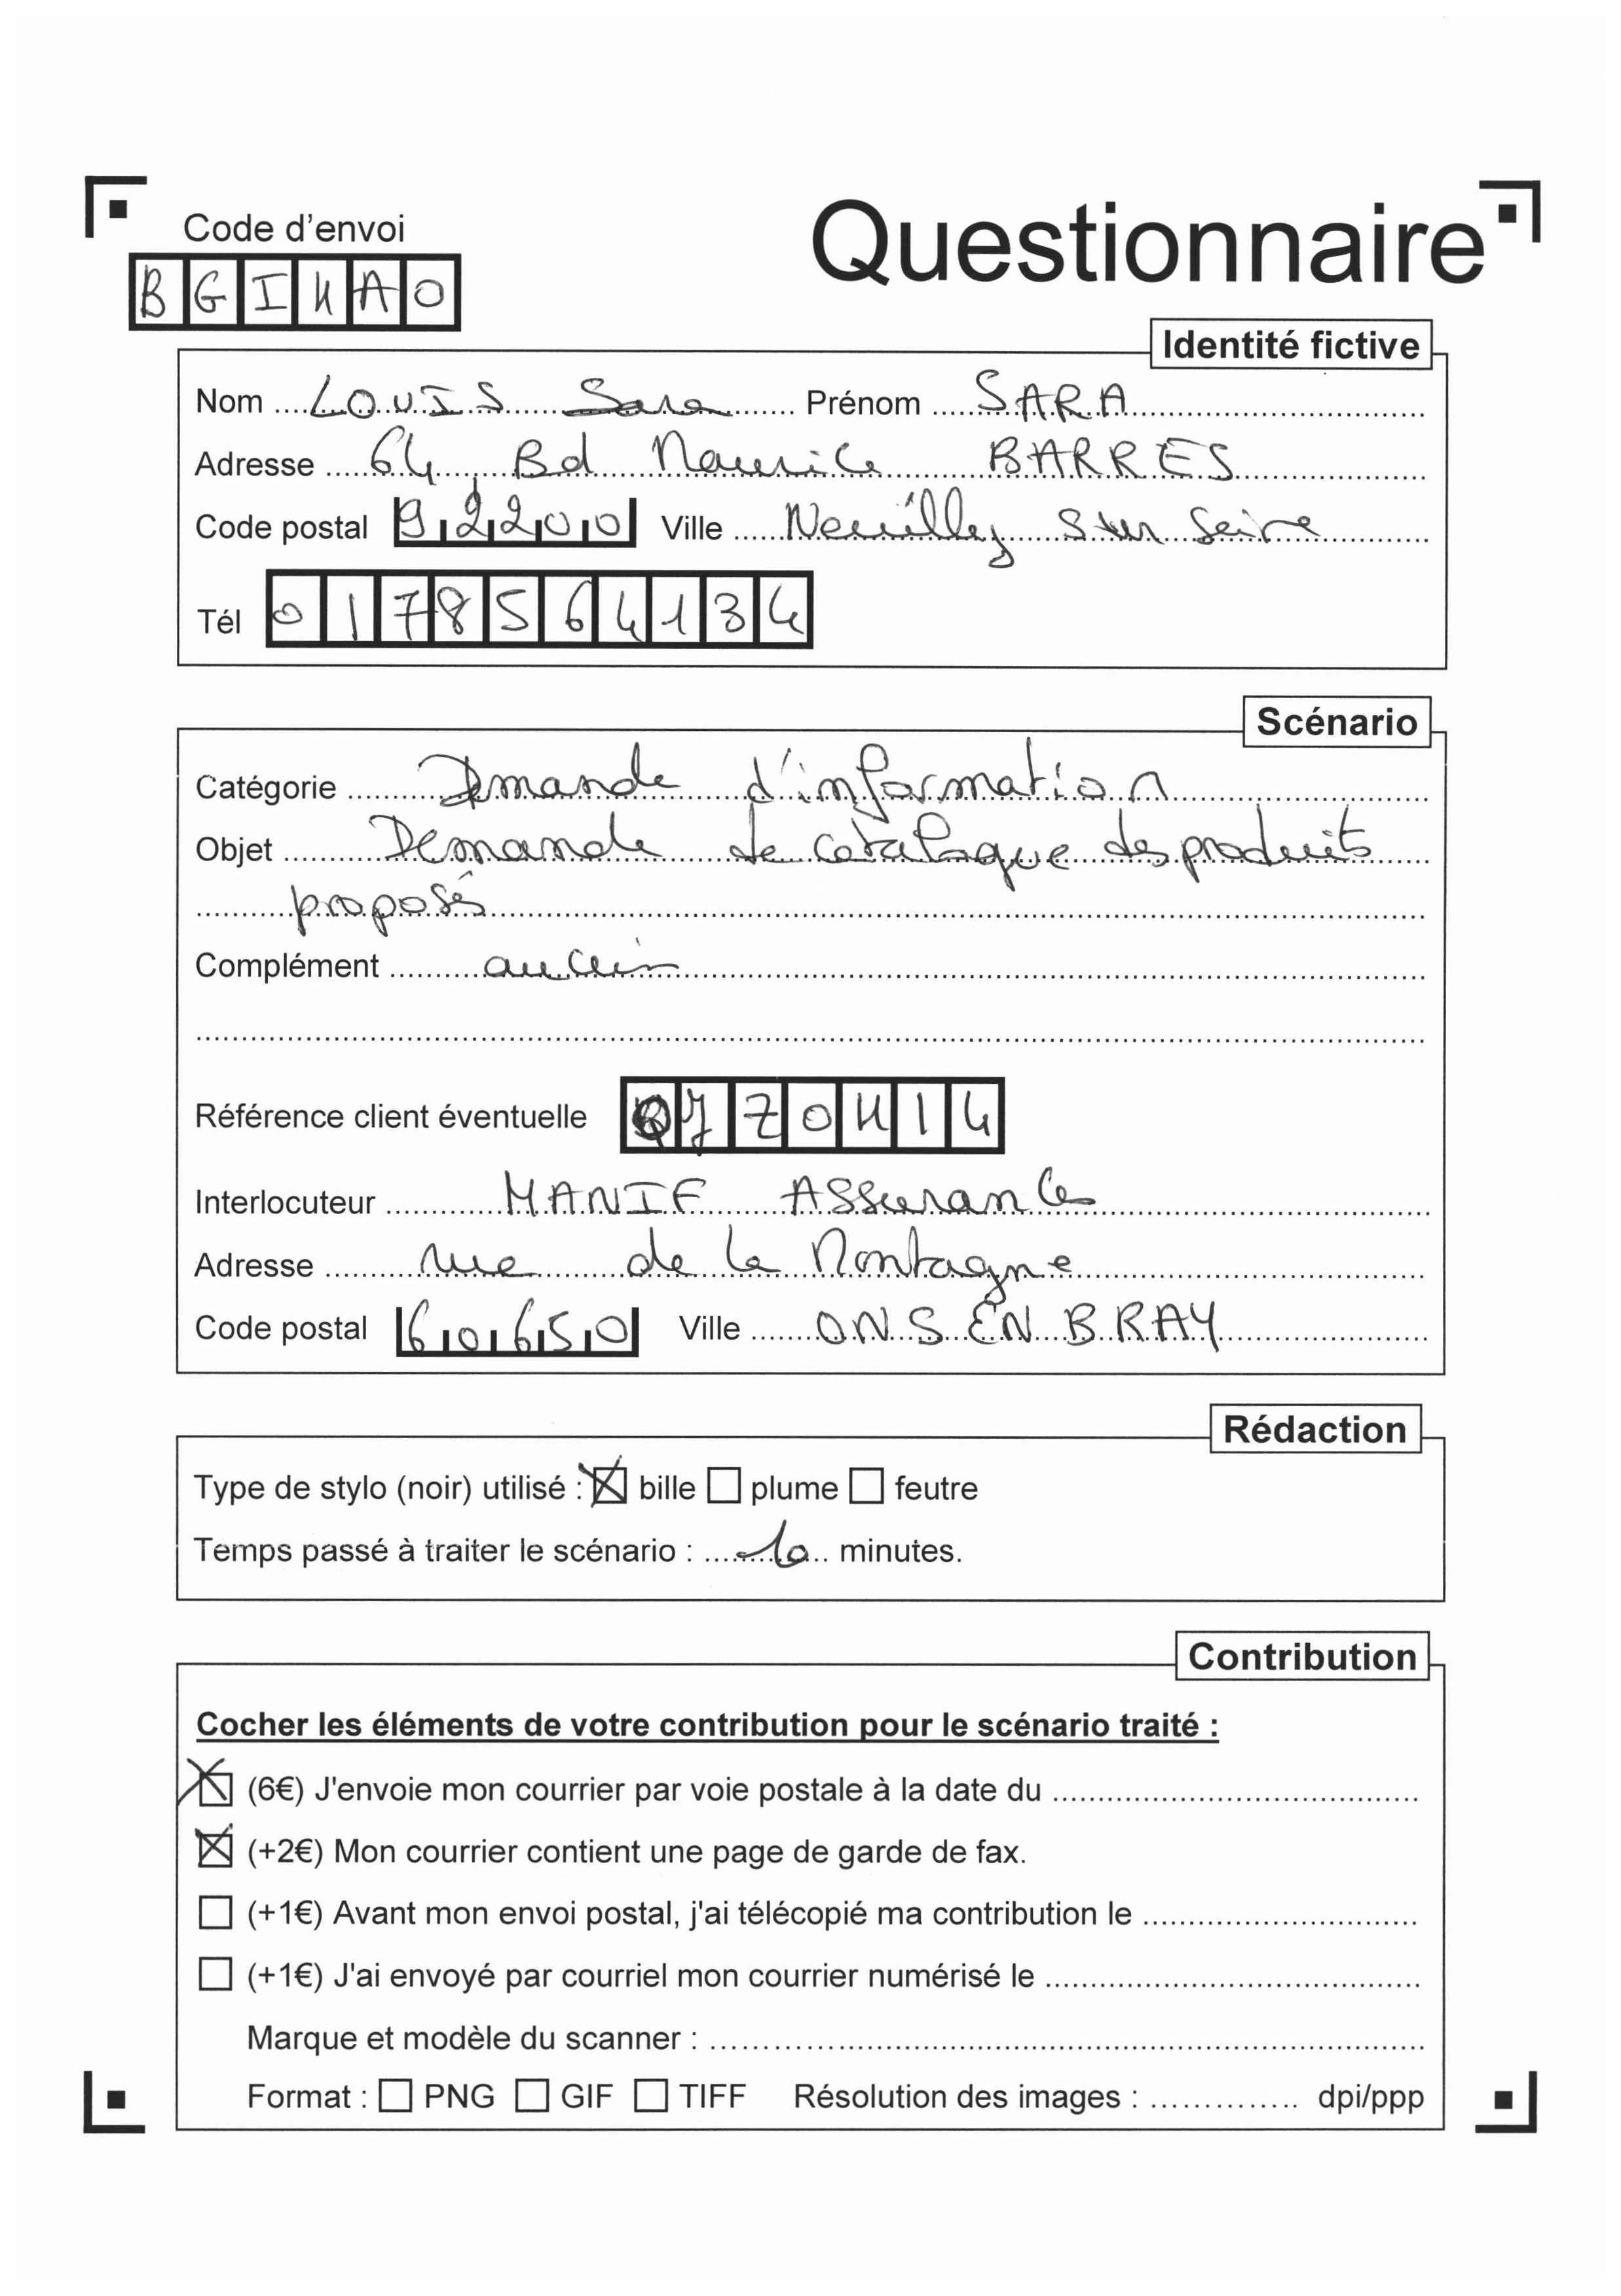 Code d'envoi
Questionnaire
BGIHAO
Identité fictive
Nom LOUIS Sara Prénom SARA
Adresse 64, Bd Maurice BARRES
Code postal 92200 Ville Neuilly sur Seine
Tél 0178564134
Scénario
Catégorie Demande d'information
Objet Demande de catalogue des produits
proposés
Complément aucun
Référence client éventuelle
Interlocuteur MANIF Assurance
Adresse rue de la Montagne
Code postal 60650 Ville ONS EN BRAY
Rédaction
Type de stylo (noir) utilisé : bille plume feutre
Temps passé à traiter le scénario : 10 minutes.
Contribution
Cocher les éléments de votre contribution pour le scénario traité :
(6€) J'envoie mon courrier par voie postale à la date du
(+2€) Mon courrier contient une page de garde de fax.
(+1€) Avant mon envoi postal, j'ai télécopié ma contribution le
(+1€) J'ai envoyé par courriel mon courrier numérisé le
Marque et modèle du scanner :
Format : PNG GIF TIFF Résolution des images : dpi/ppp